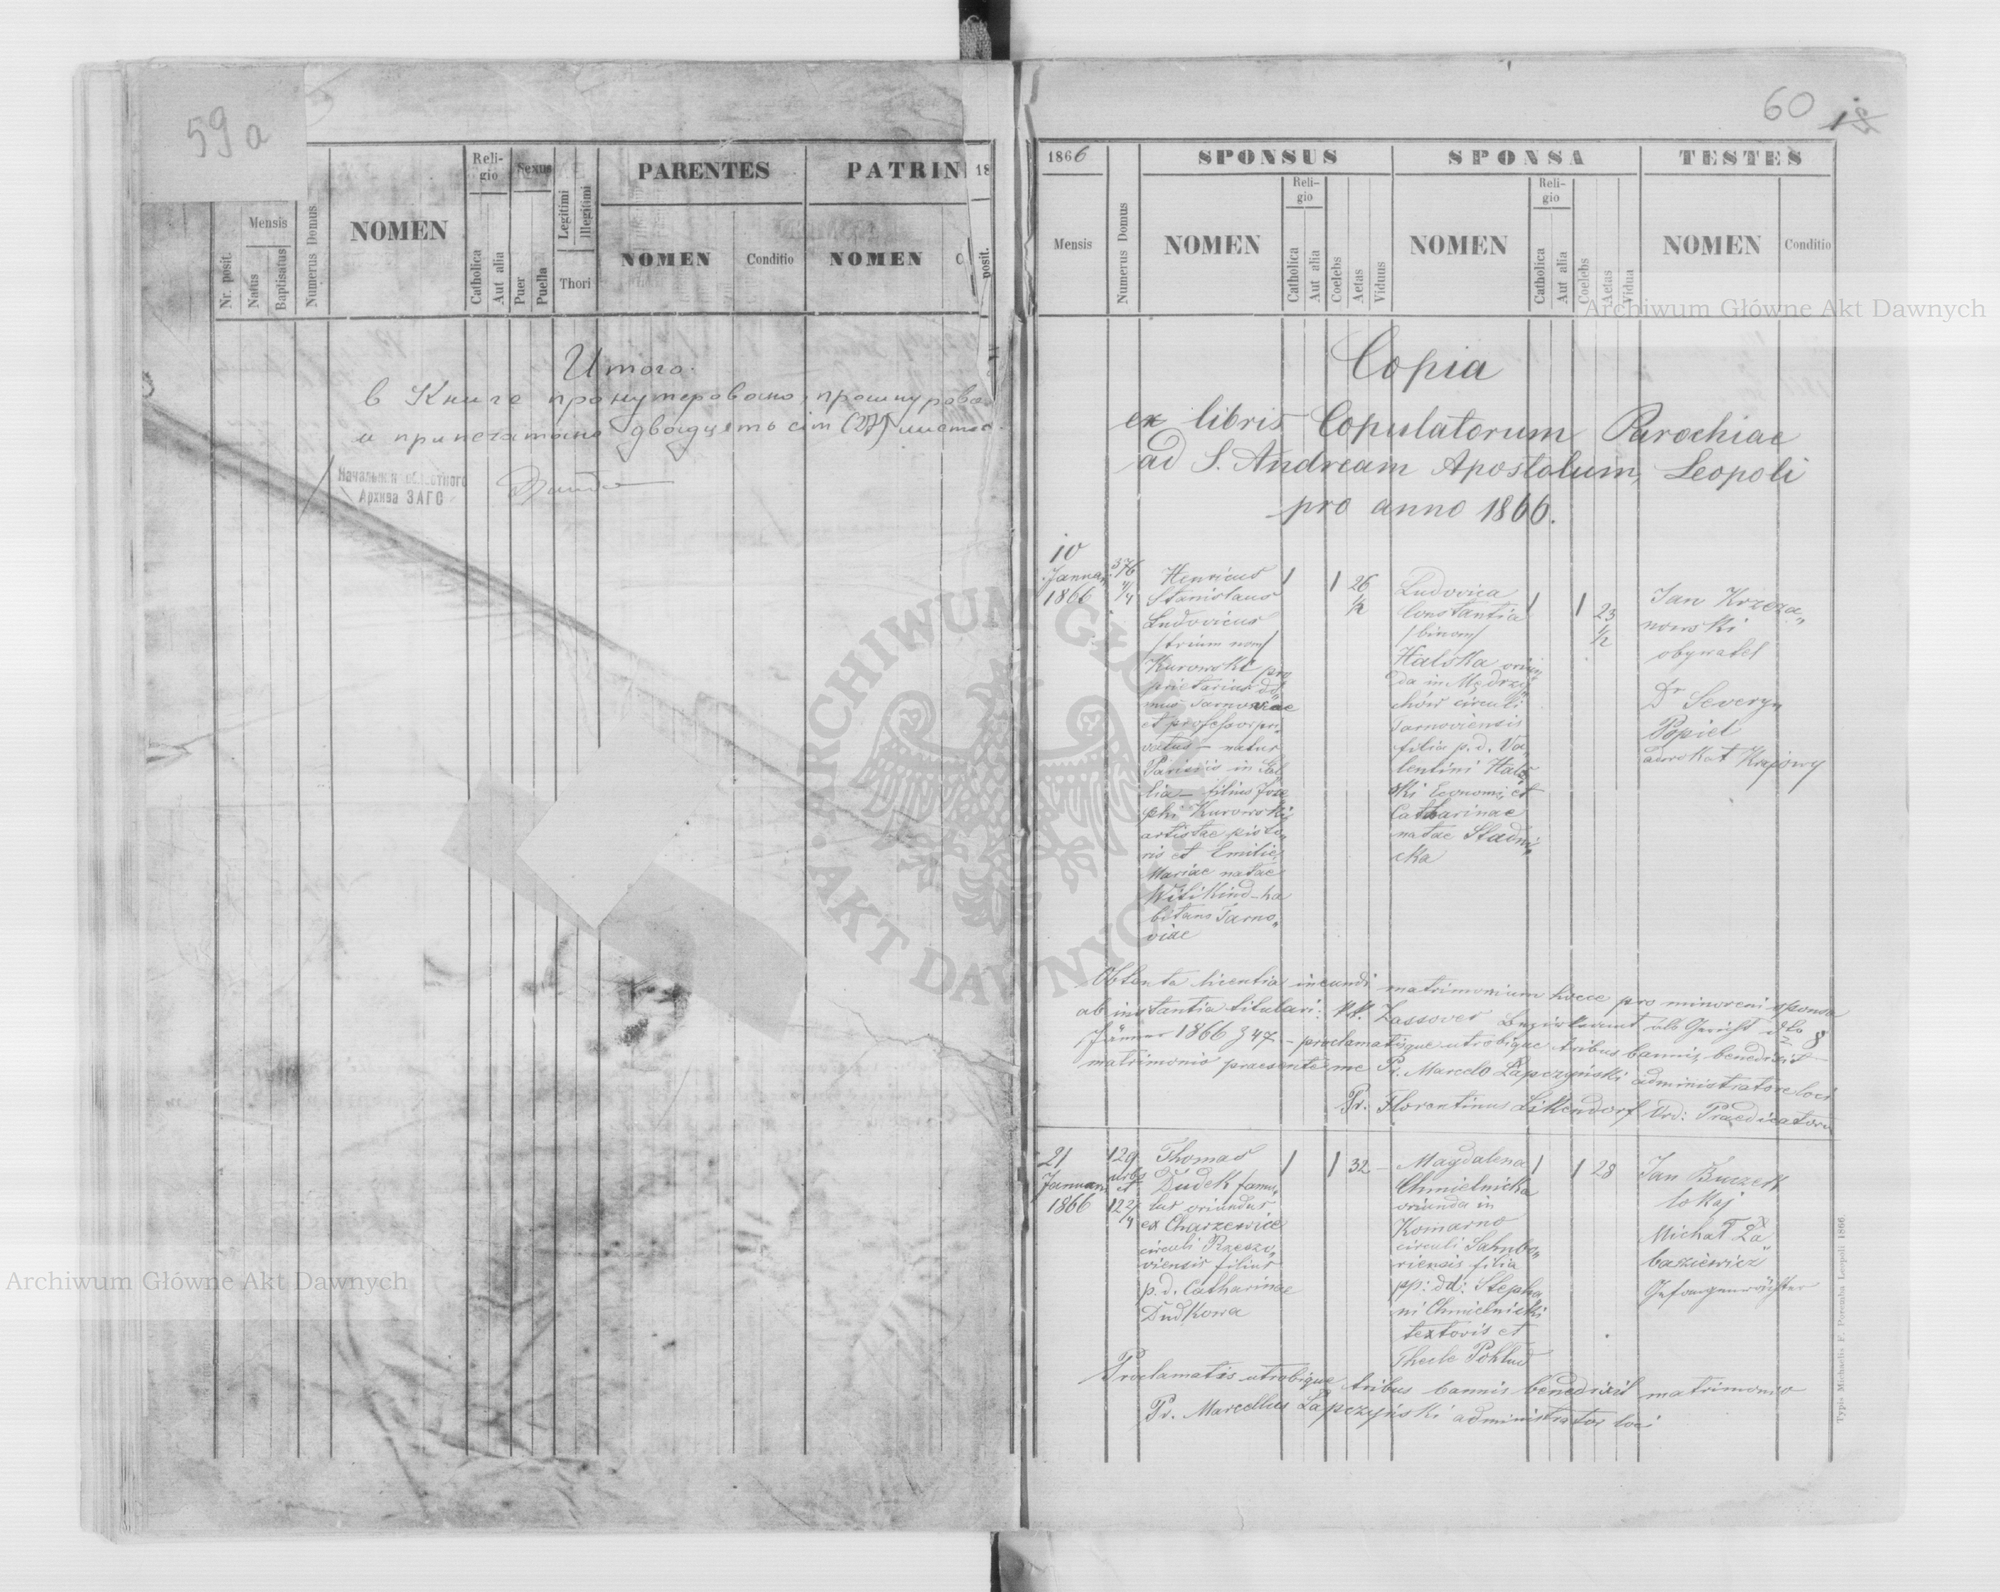 59a
Nr. posit.
Mensis
Natus
Baptisatus
Numerus Domus
NOMEN
Reli-
gio
Catholica
Aut alia
Sexus
Puer
Puella
Legitimi
Illegitimi
Thori
PARENTES
NOMEN
Conditio
PATRIN
NOMEN
C
18
posit.
Итого
в Книге пронумеровано, прошнурова
и припечатано двадцять сім (27) листов.
Начальник областного
Архива ЗАГС
60
18
1866
Mensis
Numerus Domus
SPONSUS
NOMEN
Reli-
gio
Catholica
Aut alia
Coelebs
Aetas
Viduus
SPONSA
NOMEN
Reli-
gio
Catholica
Aut alia
Coelebs
Aetas
Vidua
TESTES
NOMEN
Conditio
Copia
ex libris Copulatorum Parochiae
ad S. Andream Apostolum, Leopoli
pro anno 1866.
10
Januar.
1866
376
4/4
Henricus
Stanislaus
Ludovicus
/trium nom/
Kurowski pro
prietarius do„
mus Tarnoviae
et professor pri„
vatus – natus
Parisiis in Gal
lia – filius Jose
phi Kurowski
artistae pisto„
ris et Emilie
Mariae natae
Witikind – ha
bitans Tarno„
viae
1
1
26
1/2
Ludovica
Constantia
/binom/
Halska oriun„
da in Mędrze
chów circuli
Tarnoviensis
filia p. d. Va„
lentini Hals
ki Economi et
Catharinae
natae Stadni„
cka
1
1
23
1/2
Jan Krzeza„
nowski
obywatel
Dr Seweryn
Popiel
adwokat Krajowy
Obtenta licentia ineundi matrimonium hocce pro minoreni sponsa
ab instantia titulari: KK. Zassover Bezirksamt als Gericht dto 8
Jänner 1866 Z 47. – proclamatisque utrobique tribus bannis benedixit
matrimonio praesente me Pr. Marcelo Łapczyński administratore loci
Pr. Florentinus Likendorf Ord: Praedicatoru
21
Januar.
1866
129
urbs
et
122
/4
Thomas
Dudek famu„
lus oriundus
ex Charzewice
circuli Rzeszo„
viensis filius
p. d. Catharinae
Dudkowa
1
1
32
Magdalena
Chmielnicka
oriunda in
Komarno
circuli Sambo„
riensis filia
pp: dd: Stepha
ni Chmielnicki
textoris et
Thecle Pohlud
1
1
28
Jan Burzek
lokaj
Michał Ła
baziewicz
Gefangenwächter
Proclamatis utrobique tribus bannis benedixit matrimonio
Pr. Marcellus Łapczyński administrator loci
Typis Michaelis F. Poremba Leopoli 1866.
Archiwum Główne Akt Dawnych
Archiwum Główne Akt Dawnych
ARCHIWUM GŁÓWNE
AKT DAWNYCH